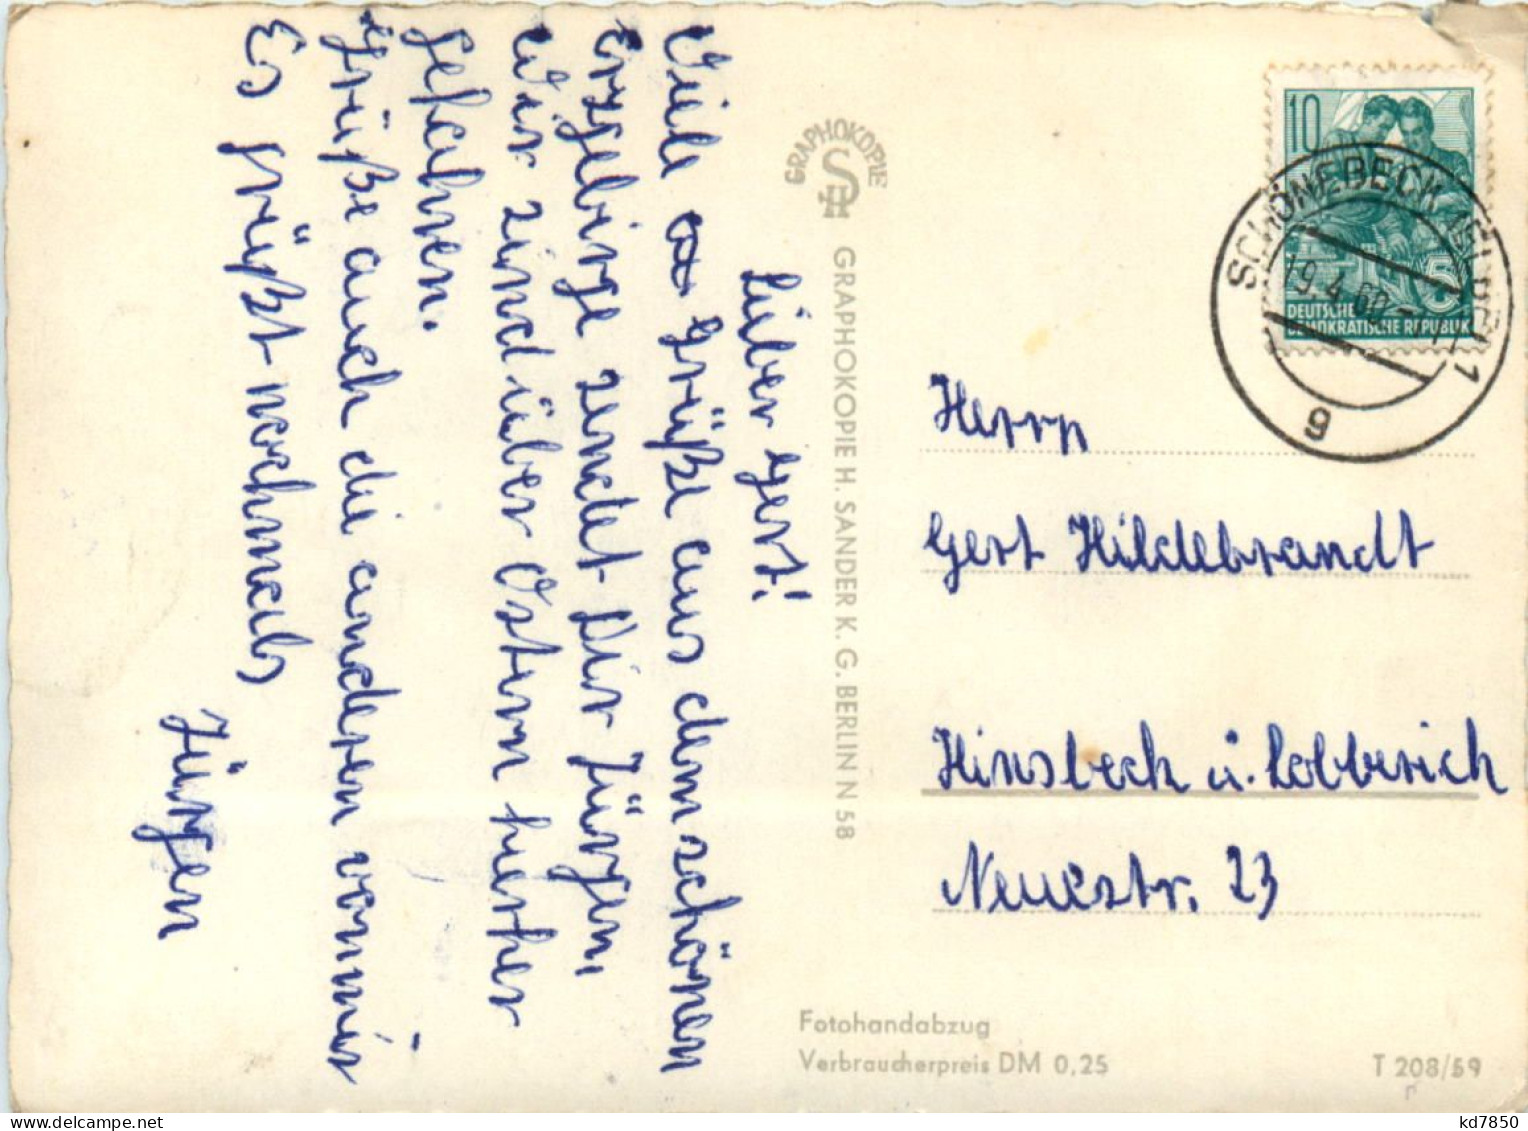 Lieber Gert!
Viele Grüße aus dem schönen
Erzgebirge sendet Dir Jürgen,
Wir sind über Ostern hierher
gefahren.
Grüße auch die anderen von mir
Es grüßt nochmals
Jürgen
GRAPHOKOPIE
GRAPHOKOPIE H. SANDER K. G. BERLIN N 58
10
DEUTSCHE
DEMOKRATISCHE REPUBLIK
5
SCHÖNEBECK (ELBE) 1
19.4.60
g
Herrn
Gert Hildebrandt
Hinsbeck ü. Lobberich
Neuestr. 23
Fotohandabzug
Verbraucherpreis DM 0,25
T 208/59
kd7850